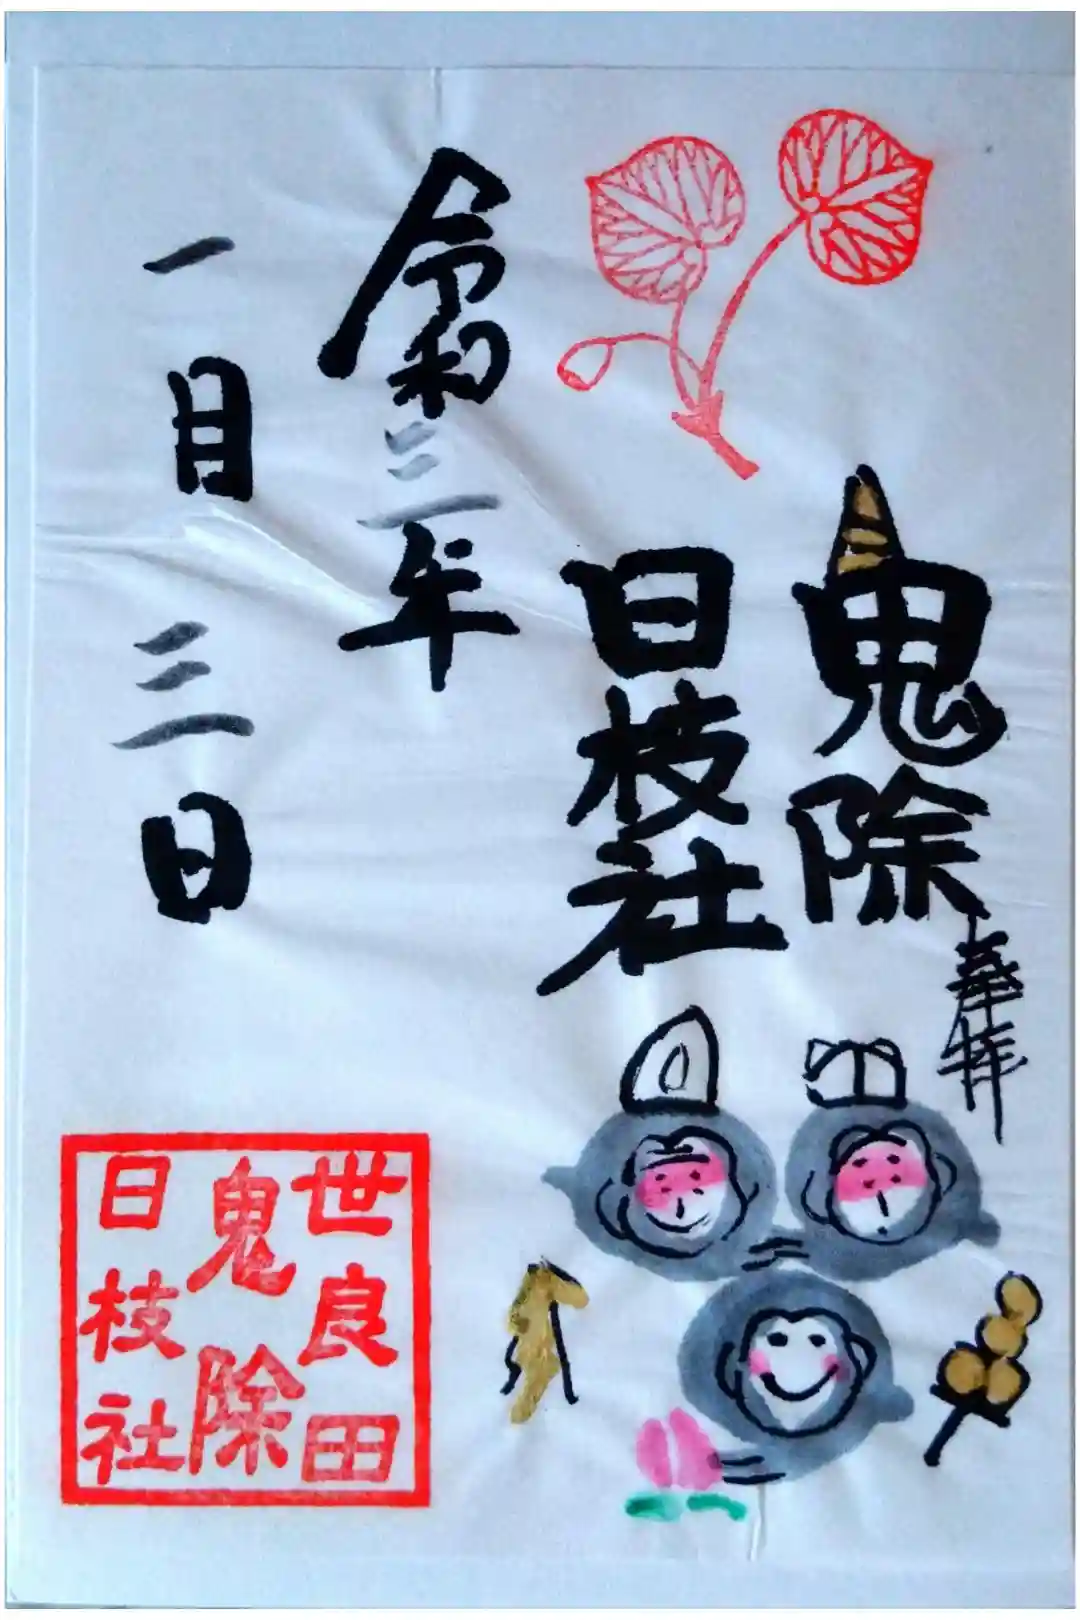 鬼除
奉拝
日枝社
令和三年
一月三日
世良田
鬼除
日枝社